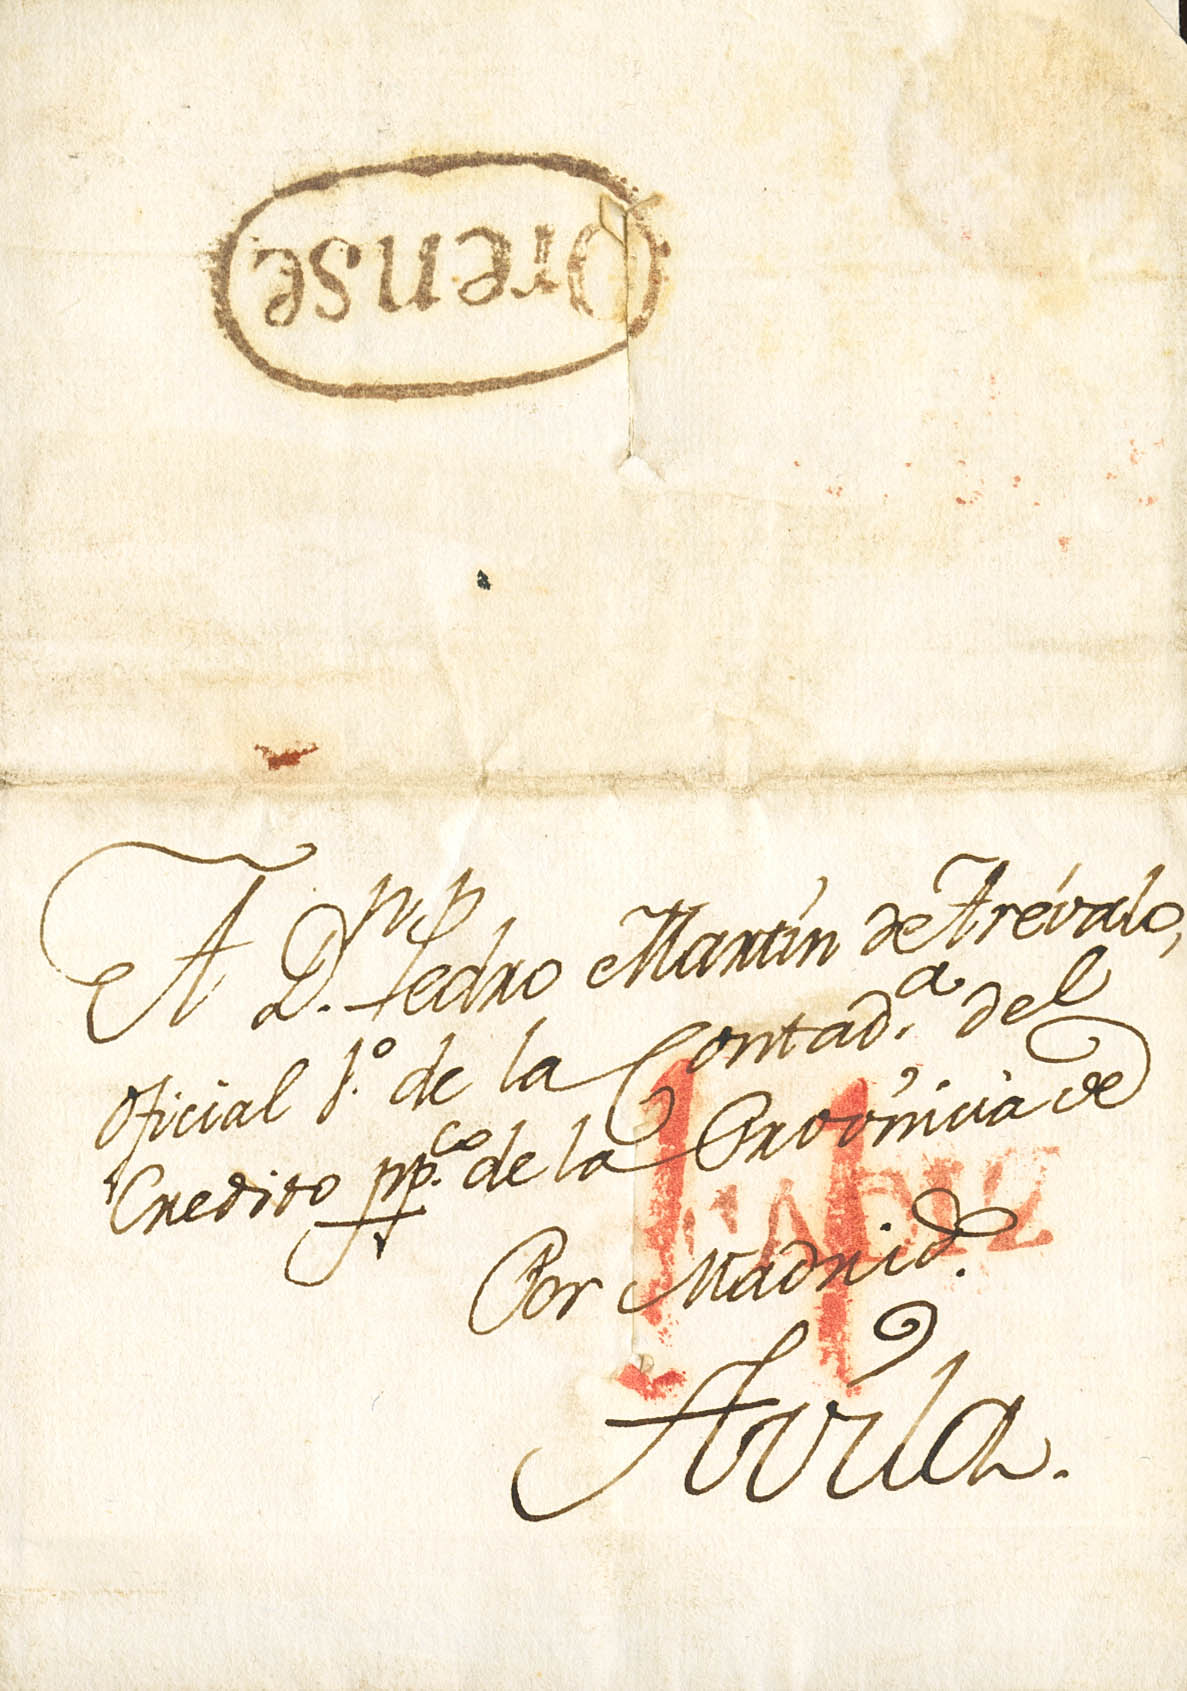 Orense
A D.n Pedro Martín de Arévalo,
Oficial 1.º de la Contad.a del
Credito pp.co de la Provincia de
CADIZ
Por Madrid.
Avila.